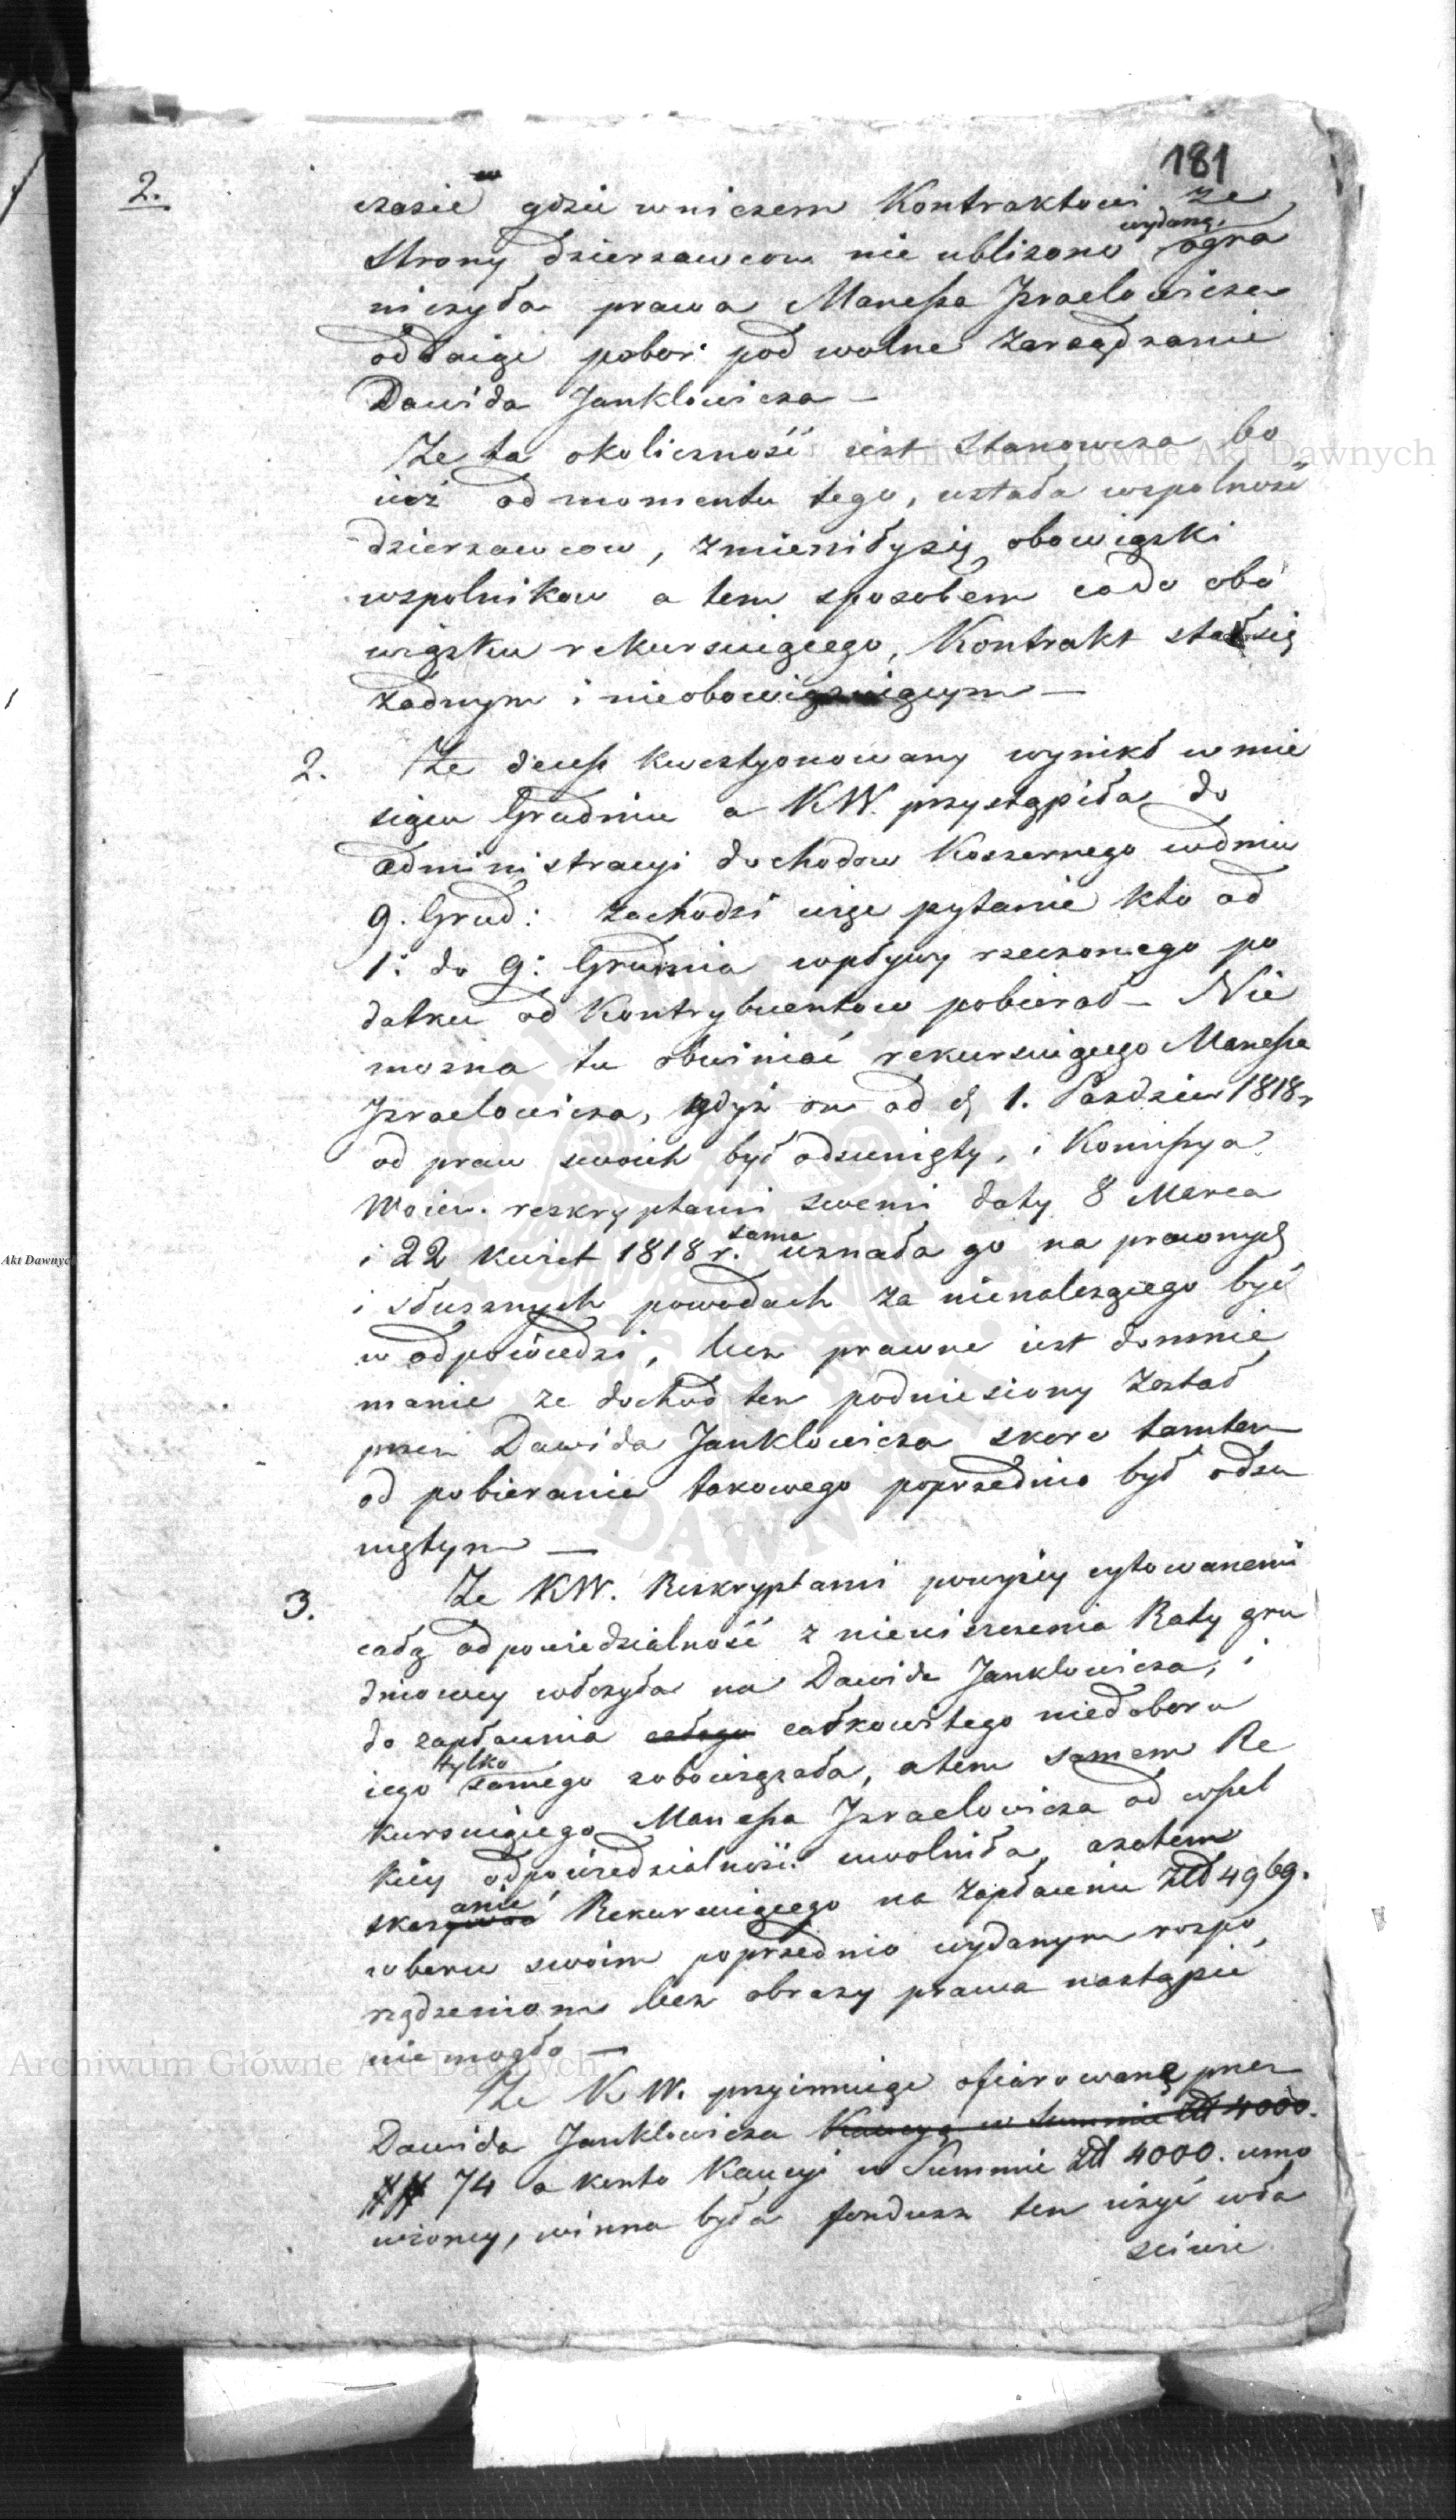 181
2.
czasie gdzie wniczem Kontraktowi ze
wydaną
strony dzierzawcow nie ubliżono ogra
niczyła prawa Manessa Jzraelowicza
oddaige pobor pod wolne zarządzanie
Dawida Janklowicza —
Ze ta okoliczność iest stanowcza bo
iuż od momentu tego, ustała wspolność
dzierzawcow, zmieniły się obowiązki
wspolnikow a tem sposobem co do obo
wiązku rekursuiącego, Kontrakt stał się
żadnym i nieobowiązuiącym —
2. Ze decess kwestyonowany wynikł w mie
siącu Grudniu a KW. przystąpiła do
administracyi dochodow Koszernego w dniu
9. Grud: zachodzi więc pytanie kto od
1: do 9: Grudnia wpływy rzeczonego po
datku od Kontrybuentow pobierał — Nie
mozna tu obwiniać rekursuiącego Manessa
Jzraelowicza, gdyż on od d 1. Pazdzier 1818 r
od praw swoich był odsunięty, i Komissya
Woiew. reskryptami swemi daty 8 Marca
i 22 Kwiet 1818 r. sama uznała go na prawnych
i słusznych powodach za nienalezącego być
w odpowiedzi, lecz prawne iest domnie
manie ze dochod ten podniesiony został
przez Dawida Janklowicza skoro tamten
od pobierania takowego poprzednio był odsu
niętym —
3. Ze KW. Reskryptami powyżey cytowanemi
całą odpowiedzialność z nieuiszczenia Raty gru
dniowey włożyła na Dawida Janklowicza, i
do zapłacenia całego całkowitego niedoboru
iego tylko samego zobowiązała, a tem samem Re
kursuiącego Manessa Jzraelowicza od wszel
kiey odpowiedzialności uwolniła, azatem
skazanie Rekursuiącego na zapłacenie Złł 4969.
wbrew swoim poprzednio wydanym rozpo
rządzeniom bez obrazy prawa nastąpić
nie mogło —
Ze KW. przyimuiąc ofiarowaną przez
Dawida Janklowicza Kaucyą w Summie złł 4000.
## 74 a konto Kaucyi w Summie złł 4000. umo
wioney, winna była fundusz ten użyć wła
ściwie
Archiwum Główne Akt Dawnych
Archiwum Główne Akt Dawnych
Akt Dawnyc